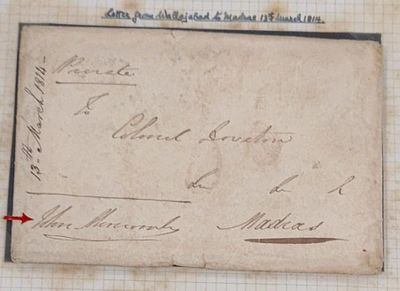 Letter from Wallajabad to Madras 13th March 1814.
13th March 1814
Private
To
Colonel
&c &c &c
John
Madras